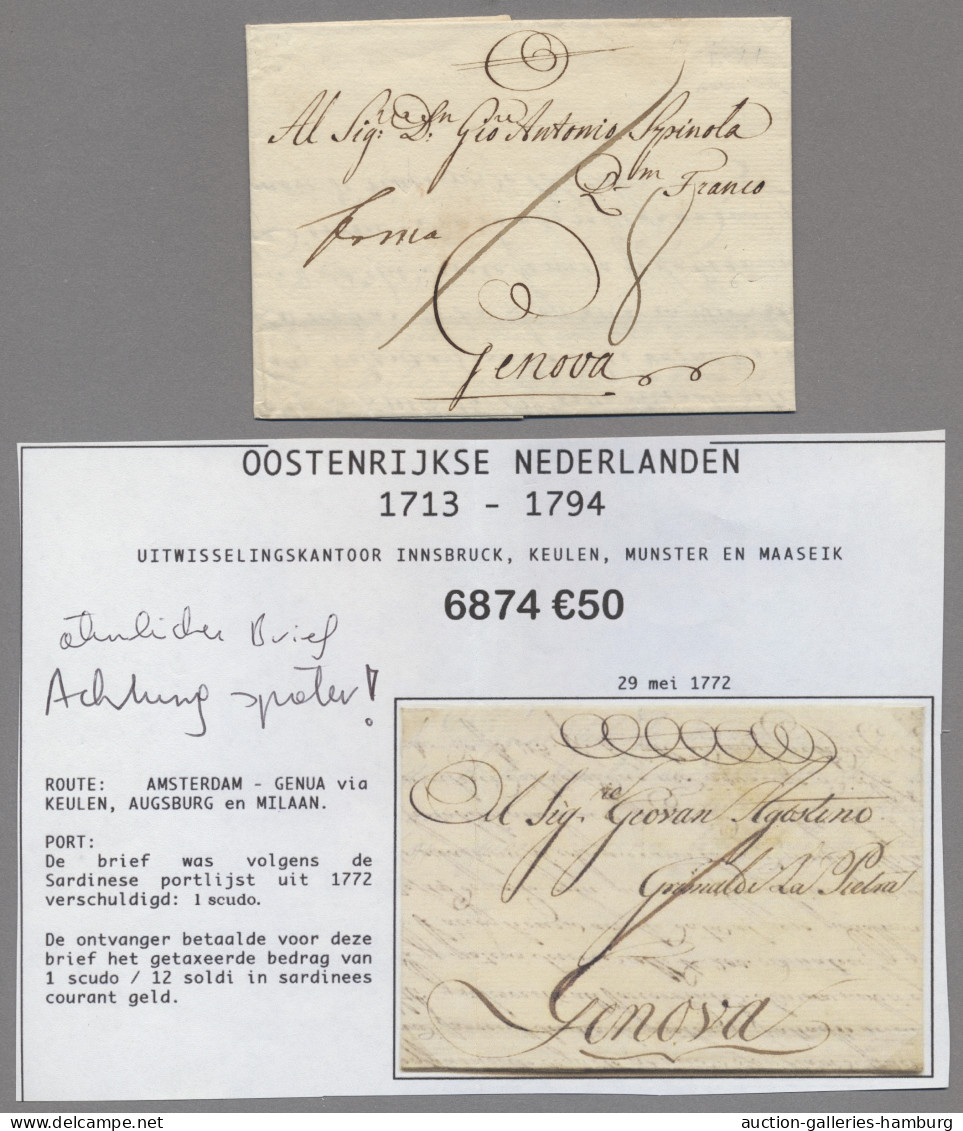 Al Sig.re D.n Gio Antonio Spinola
Q.m Franco
Genova
OOSTENRIJKSE NEDERLANDEN
1713 - 1794
UITWISSELINGSKANTOOR INNSBRUCK, KEULEN, MUNSTER EN MAASEIK
6874 €50
ähnlicher Brief
Achtung später!
29 mei 1772
ROUTE: AMSTERDAM - GENUA via
KEULEN, AUGSBURG en MILAAN.
PORT:
De brief was volgens de
Sardinese portlijst uit 1772
verschuldigd: 1 scudo.
De ontvanger betaalde voor deze
brief het getaxeerde bedrag van
1 scudo / 12 soldi in sardinees
courant geld.
Al Sig.re Giovan Agostino
Grimaldi La Pietra
Genova
auction-galleries-hamburg